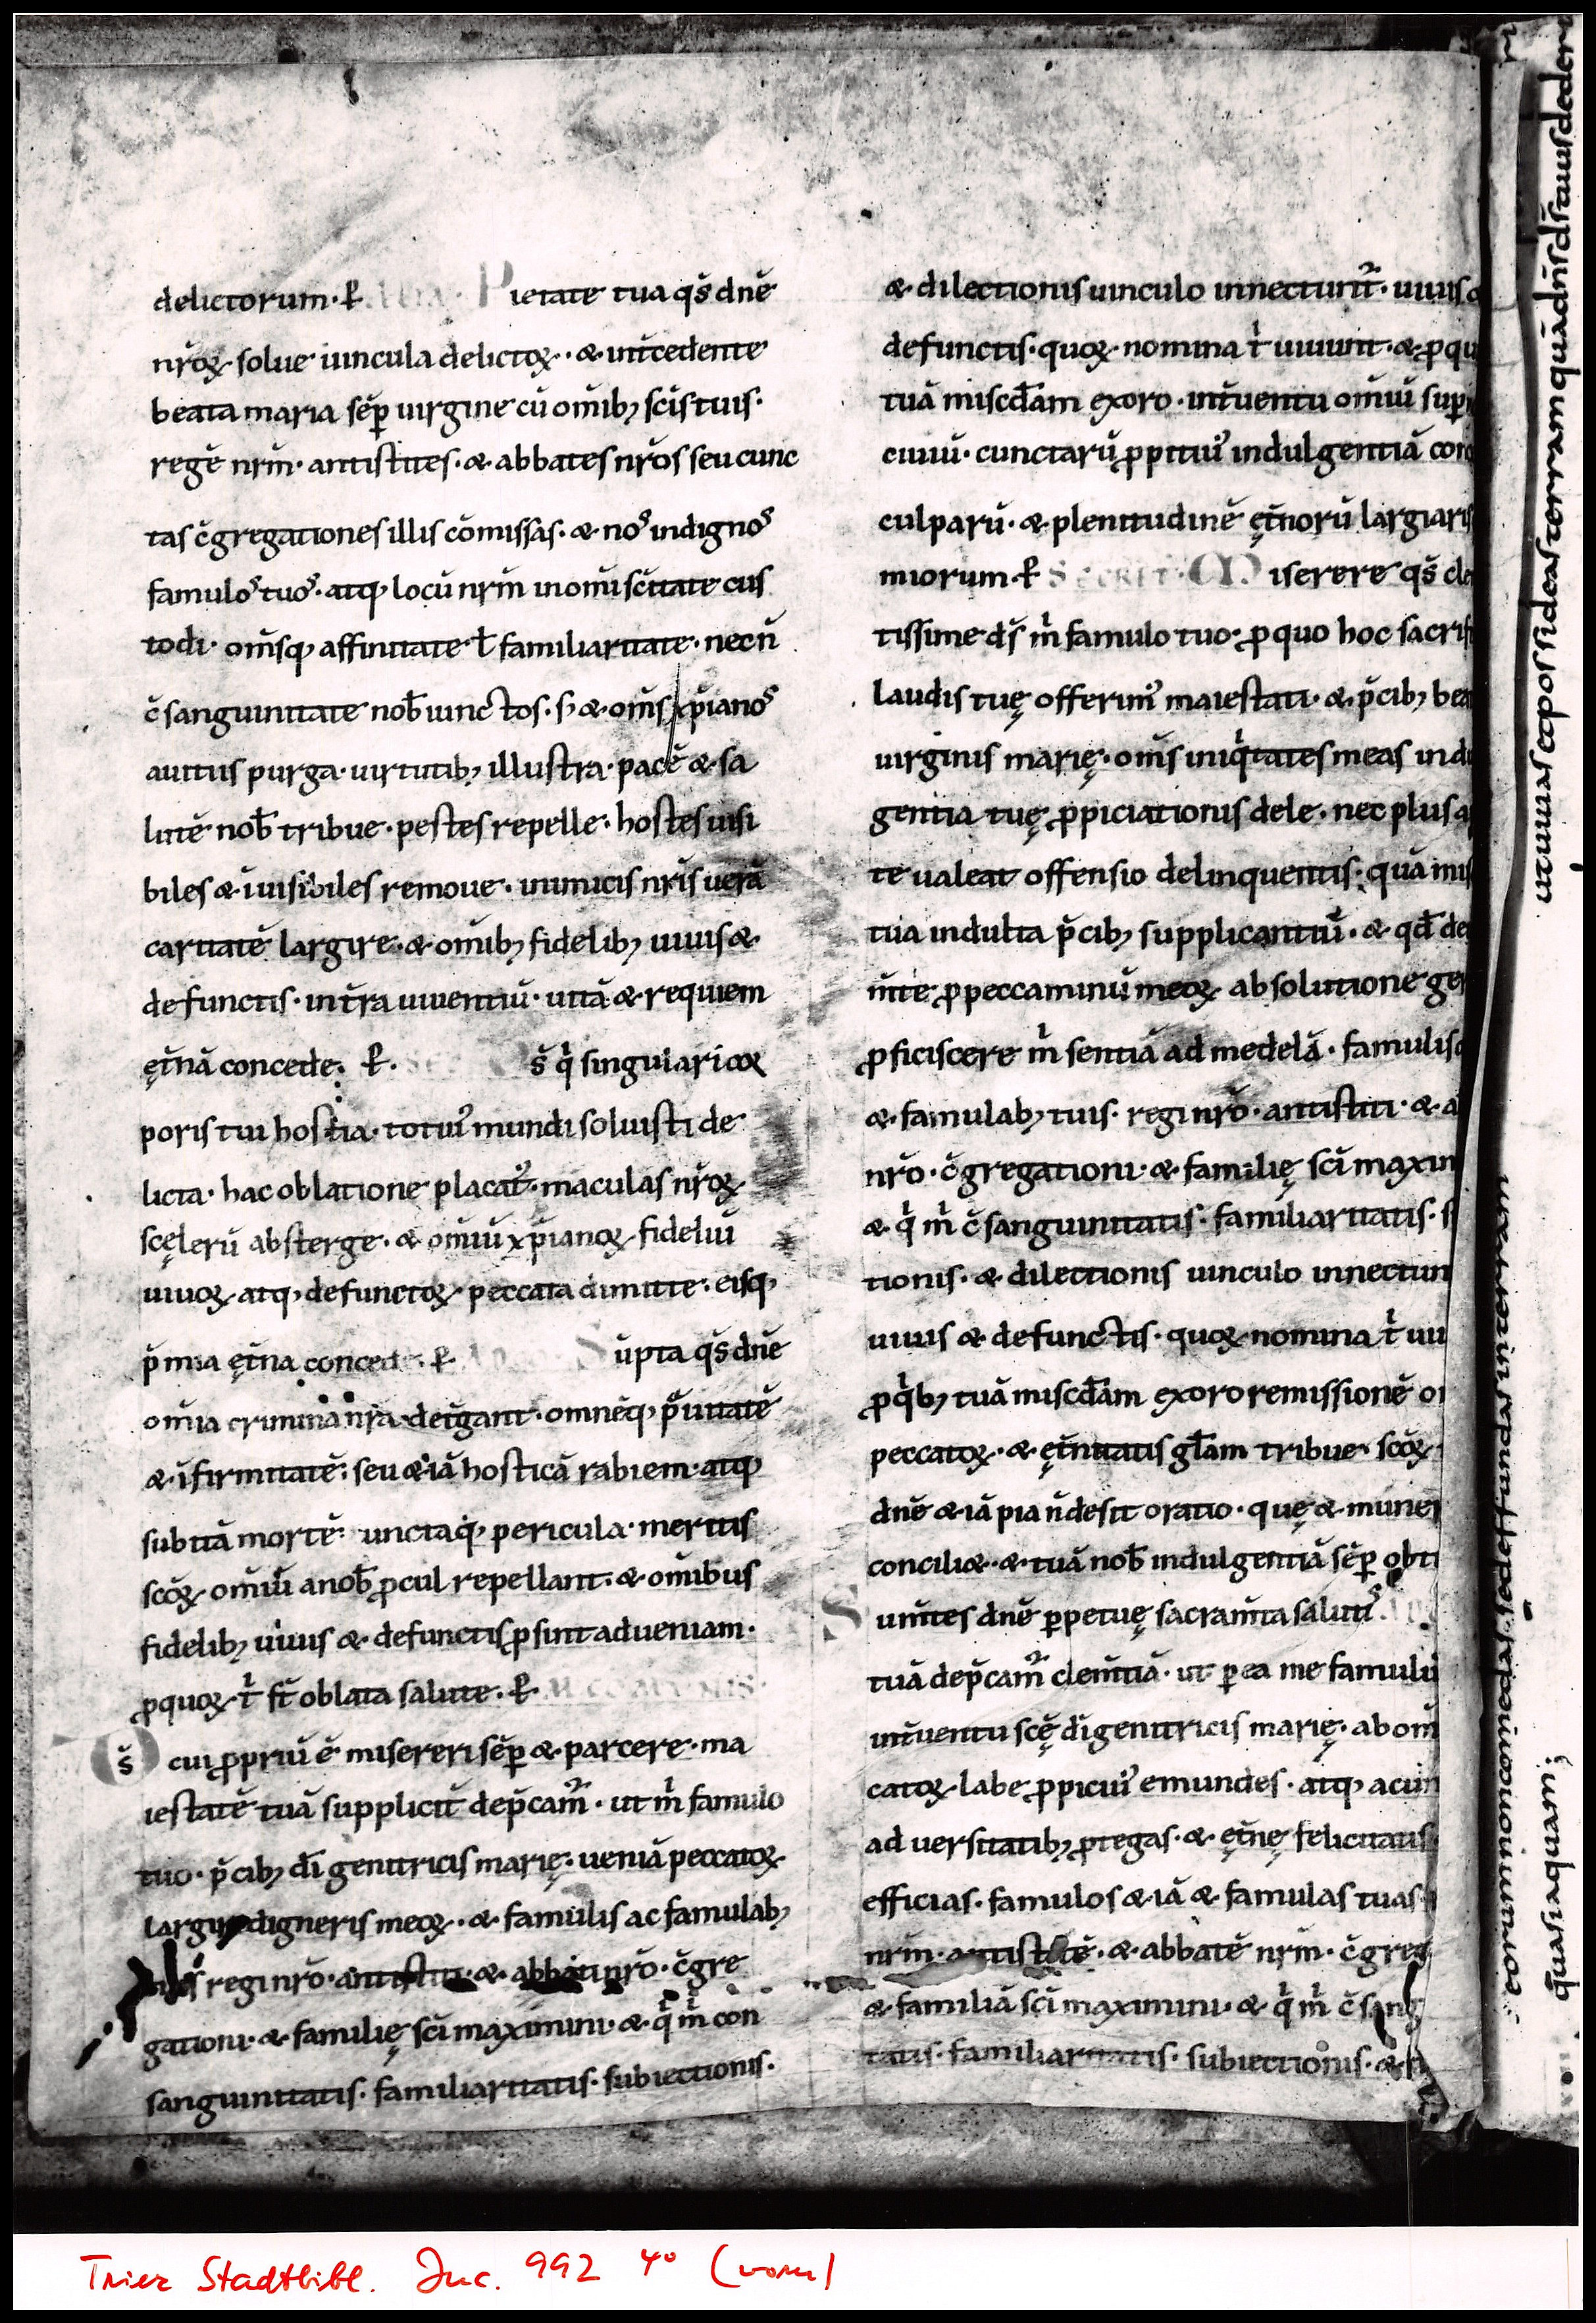 delictorum· ꝑ Pietate tua qs̄ dnē
nr̄oꝝ solue uincula delictoꝝ· & int̄cedente
beata maria sēp uirgine cū om̄ibꝫ scīs tuis·
regē nr̄m· antistites· & abbates nr̄os seu cunc
tas c̄gregationes illis cōmissas· & nos indignos
famulos tuos· atqꝫ locū nr̄m in om̄i sc̄itate cus
todi· om̄sqꝫ affinitate ł familiaritate· necn̄
c̄sanguinitate nob̄ iunctos· s; & om̄s xp̄ianos
a uitiis purga· uirtutibꝫ illustra· pacē & sa
lutē nob̄ tribue· pestes repelle· hostes uisi
biles & īuisibiles remoue· inimicis nr̄is uerā
caritatē largire· & om̄ibꝫ fidelibꝫ uiuis &
defunctis· in t̄ra uiuentiū· uitā & requiem
ęt̄nā concede· ꝑ· Sec s̄ qͥ singulari coꝝ
poris tui hostia· totiꝰ mundi soluisti de
licta· hac oblatione placatꝰ· maculas nr̄oꝝ
scęlerū absterge· & om̄iū xp̄ianoꝝ fideliū
uiuoꝝ atqꝫ defunctoꝝ peccata dimitte· eisqꝫ
p̄mia ęt̄na concede· ꝑ Sūpta qs̄ dnē
om̄ia crimina nr̄a det̄gant· omnēqꝫ p̄uitatē
& īfirmitatē· seu &iā hosticā rabiem atqꝫ
subitā mortē· cunctaqꝫ pericula· meritis
scōꝝ om̄iū a nob̄ ꝓcul repellant· & om̄ibus
fidelibꝫ uiuis & defunctis ꝓsint ad ueniam·
ꝓ quoꝝ tͥ st̄ oblata salute· ꝑ
Ds̄ cui ꝓpriū ē misereri sēp & parcere· ma
iestatē tuā supplicit̄ dep̄cam̄· ut m̄ famulo
tuo· p̄cibꝫ dī genitricis marię· ueniā peccatoꝝ
largiri digneris meoꝝ· & famulis ac famulabꝫ
tuis regi nr̄o· antistiti· & abbati nr̄o· c̄gre
gationi· & familię scī maximini· & qͥ m̄ con
sanguinitatis· familiaritatis· subiectionis·
& dilectionis uinculo innectunt̄· uiuis
defunctis· quoꝝ nomina tͥ uiuunt· & ꝓ qu
tuā misc̄dam exoro· int̄uentu om̄iū sup
ciuiū· cunctarū ꝓpitiuꝰ indulgentiā con
culparū· & plenitudinē ęt̄norū largiaris
miorum· ꝑ Secret· Miserere qs̄ cle
tissime ds̄ m̄ famulo tuo· ꝓ quo hoc sacrifi
laudis tuę offerimꝰ maiestati· & p̄cibꝫ bea
uirginis marię· om̄s iniqͥtates meas indu
gentia tuę ꝓpiciationis dele· nec plus a
te ualeat offensio delinquentis· quā mis
tua indulta p̄cibꝫ supplicantiū· & qd̄ de
m̄te ꝓ peccaminū meoꝝ absolutione ge
ꝓficiscere m̄ sentiā ad medelā· famulis
& famulabꝫ tuis· regi nr̄o· antistiti· & a
nr̄o· c̄gregationi· & familię scī maxim
& qͥ m̄ c̄sanguinitatis· familiaritatis· s
tionis· & dilectionis uinculo innectun
uiuis & defunctis· quoꝝ nomina tͥ uiu
ꝓ qͥbꝫ tuā misc̄dam exoro remissionē o
peccatoꝝ· & ęt̄nitatis gl̄am tribue· scōꝝ
dnē &iā pia n̄ desit oratio· quę & mune
conciliet· & tuā nob̄ indulgentiā sēp obt
Sum̄tes dnē ꝑpetuę sacram̄ta salutis
tuā dep̄cam̄ clem̄tiā· ut ꝑ ea me famulū
int̄uentu scę̄ dī genitricis marię· ab om̄
catoꝝ labe ꝓpiciuꝰ emundes· atqꝫ a cun
aduersitatibꝫ ꝓtegas· & ęt̄nę felicitatis
efficias· famulos &iā & famulas tuas
nr̄m· antistitē· & abbatē nr̄m· c̄greg
& familiā scī maximini· & qͥ m̄ c̄sang
tatis· familiaritatis· subiectionis· &
ut uiuas et possideas terram quā dn̄s ds̄ tuus deder
eorum non comedas· sed effundas in terram
quasi aquam;
Trier Stadtbibl. Inc. 992 4° (vorn)